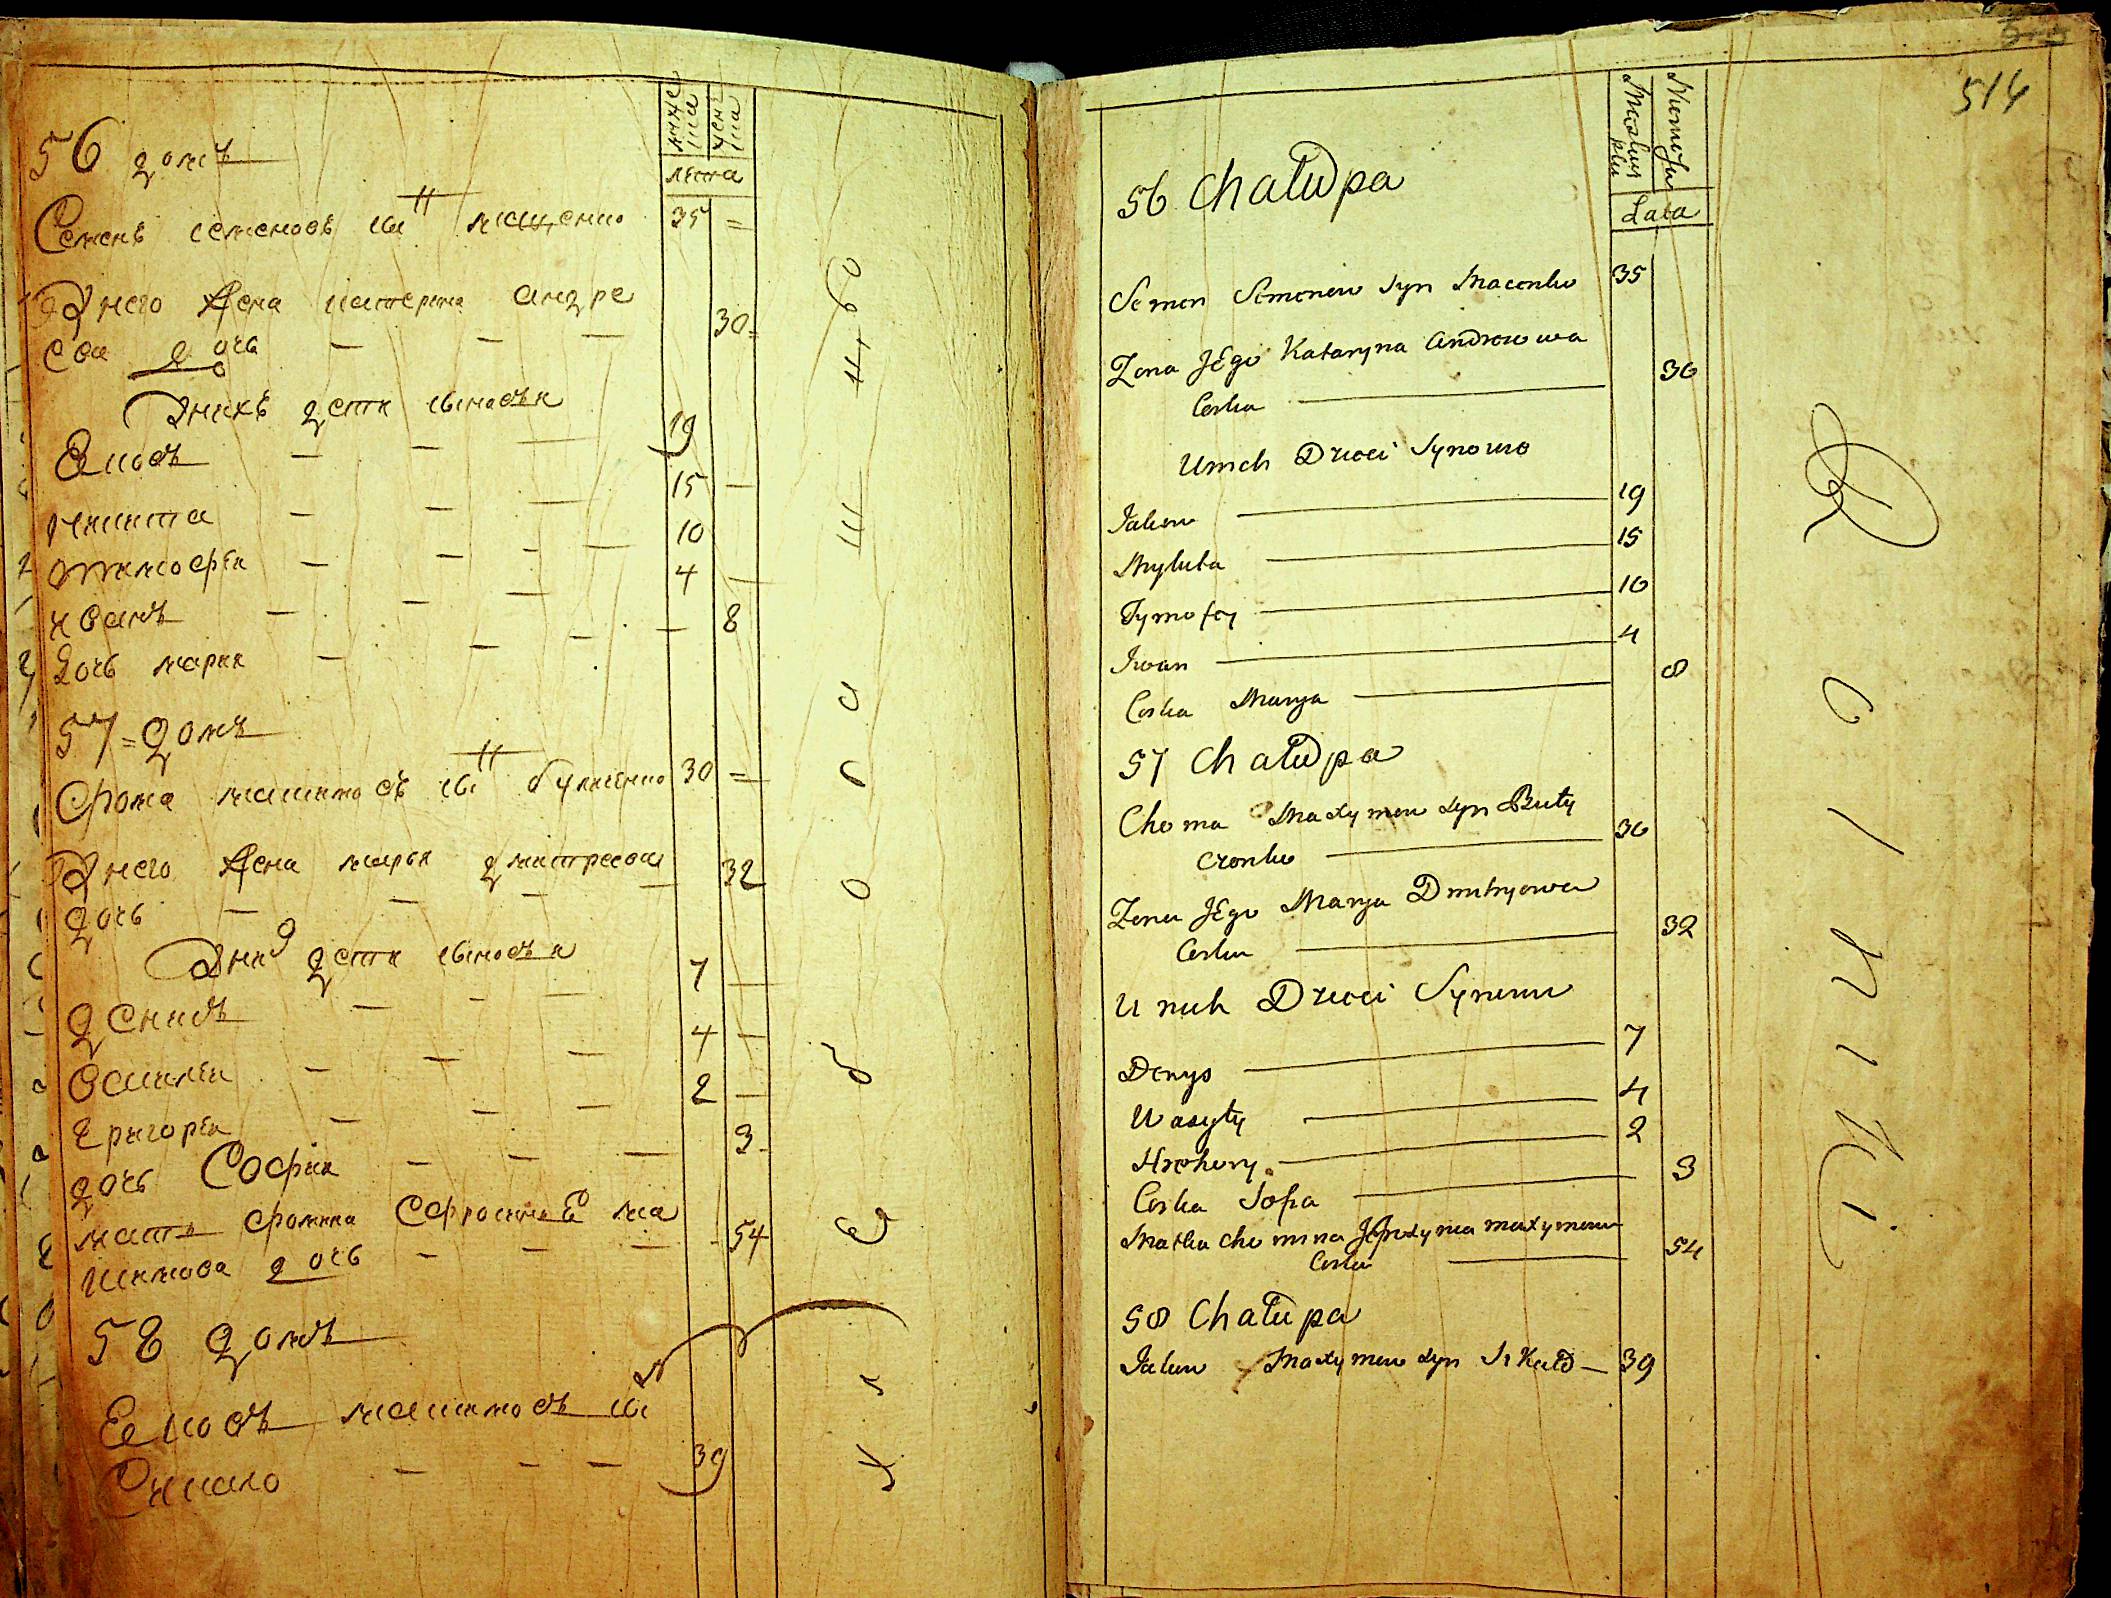 56 домъ
муже
ска
женс
ка
лета
Семенъ семеновъ снъ маценко 35 =
Унего жена катерина андре
ева дочь 30 =
Унихъ дети сыновья
Яковъ 19
микита 15
тимофей 10
иванъ 4
дочь мария 8
57 = домъ
Фома максимовъ снъ 30 =
Унего жена марья дмитреева
дочь 32
Уних дети сыновья
денисъ 7
василей 4
григорей 2
дочь София 3
мать фомина Ефросиния ма
ксимова дочь 54
58 домъ
Яковъ максимовъ снъ
Сикало 39
514
Lata
56 Chałupa
Semen Semenow Syn Macenko 35
Zona Jego Kataryna Androwa
Corka 30
Unich Dzieci Synowo
Jakow 19
Mykita 15
Tymofey 10
Iwan 4
Corka Marya 8
57 Chałupa
Choma Maxymow Syn Buły
czenko 30
Zona Jego Marya Dmitryowa
Corka 32
U nich Dzieci Synowo
Denys 7
Wasyły 4
Hrehory 2
Corka Sofia 3
Matka chomina Jefrozynia maxymowa
Corka 54
58 Chałupa
Jakow Maxymow Syn Sikało 39
R o l n i k i